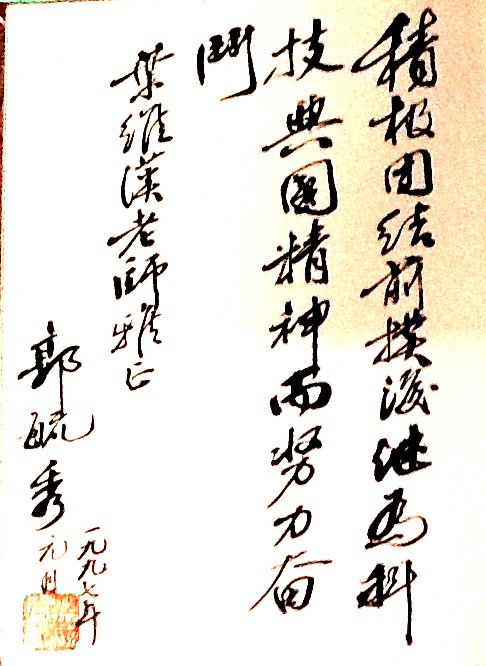 積极团结前撲後继为科
技興國精神而努力奋
鬥
葉維漢老師雅正
郭毓秀
一九九七年
元月